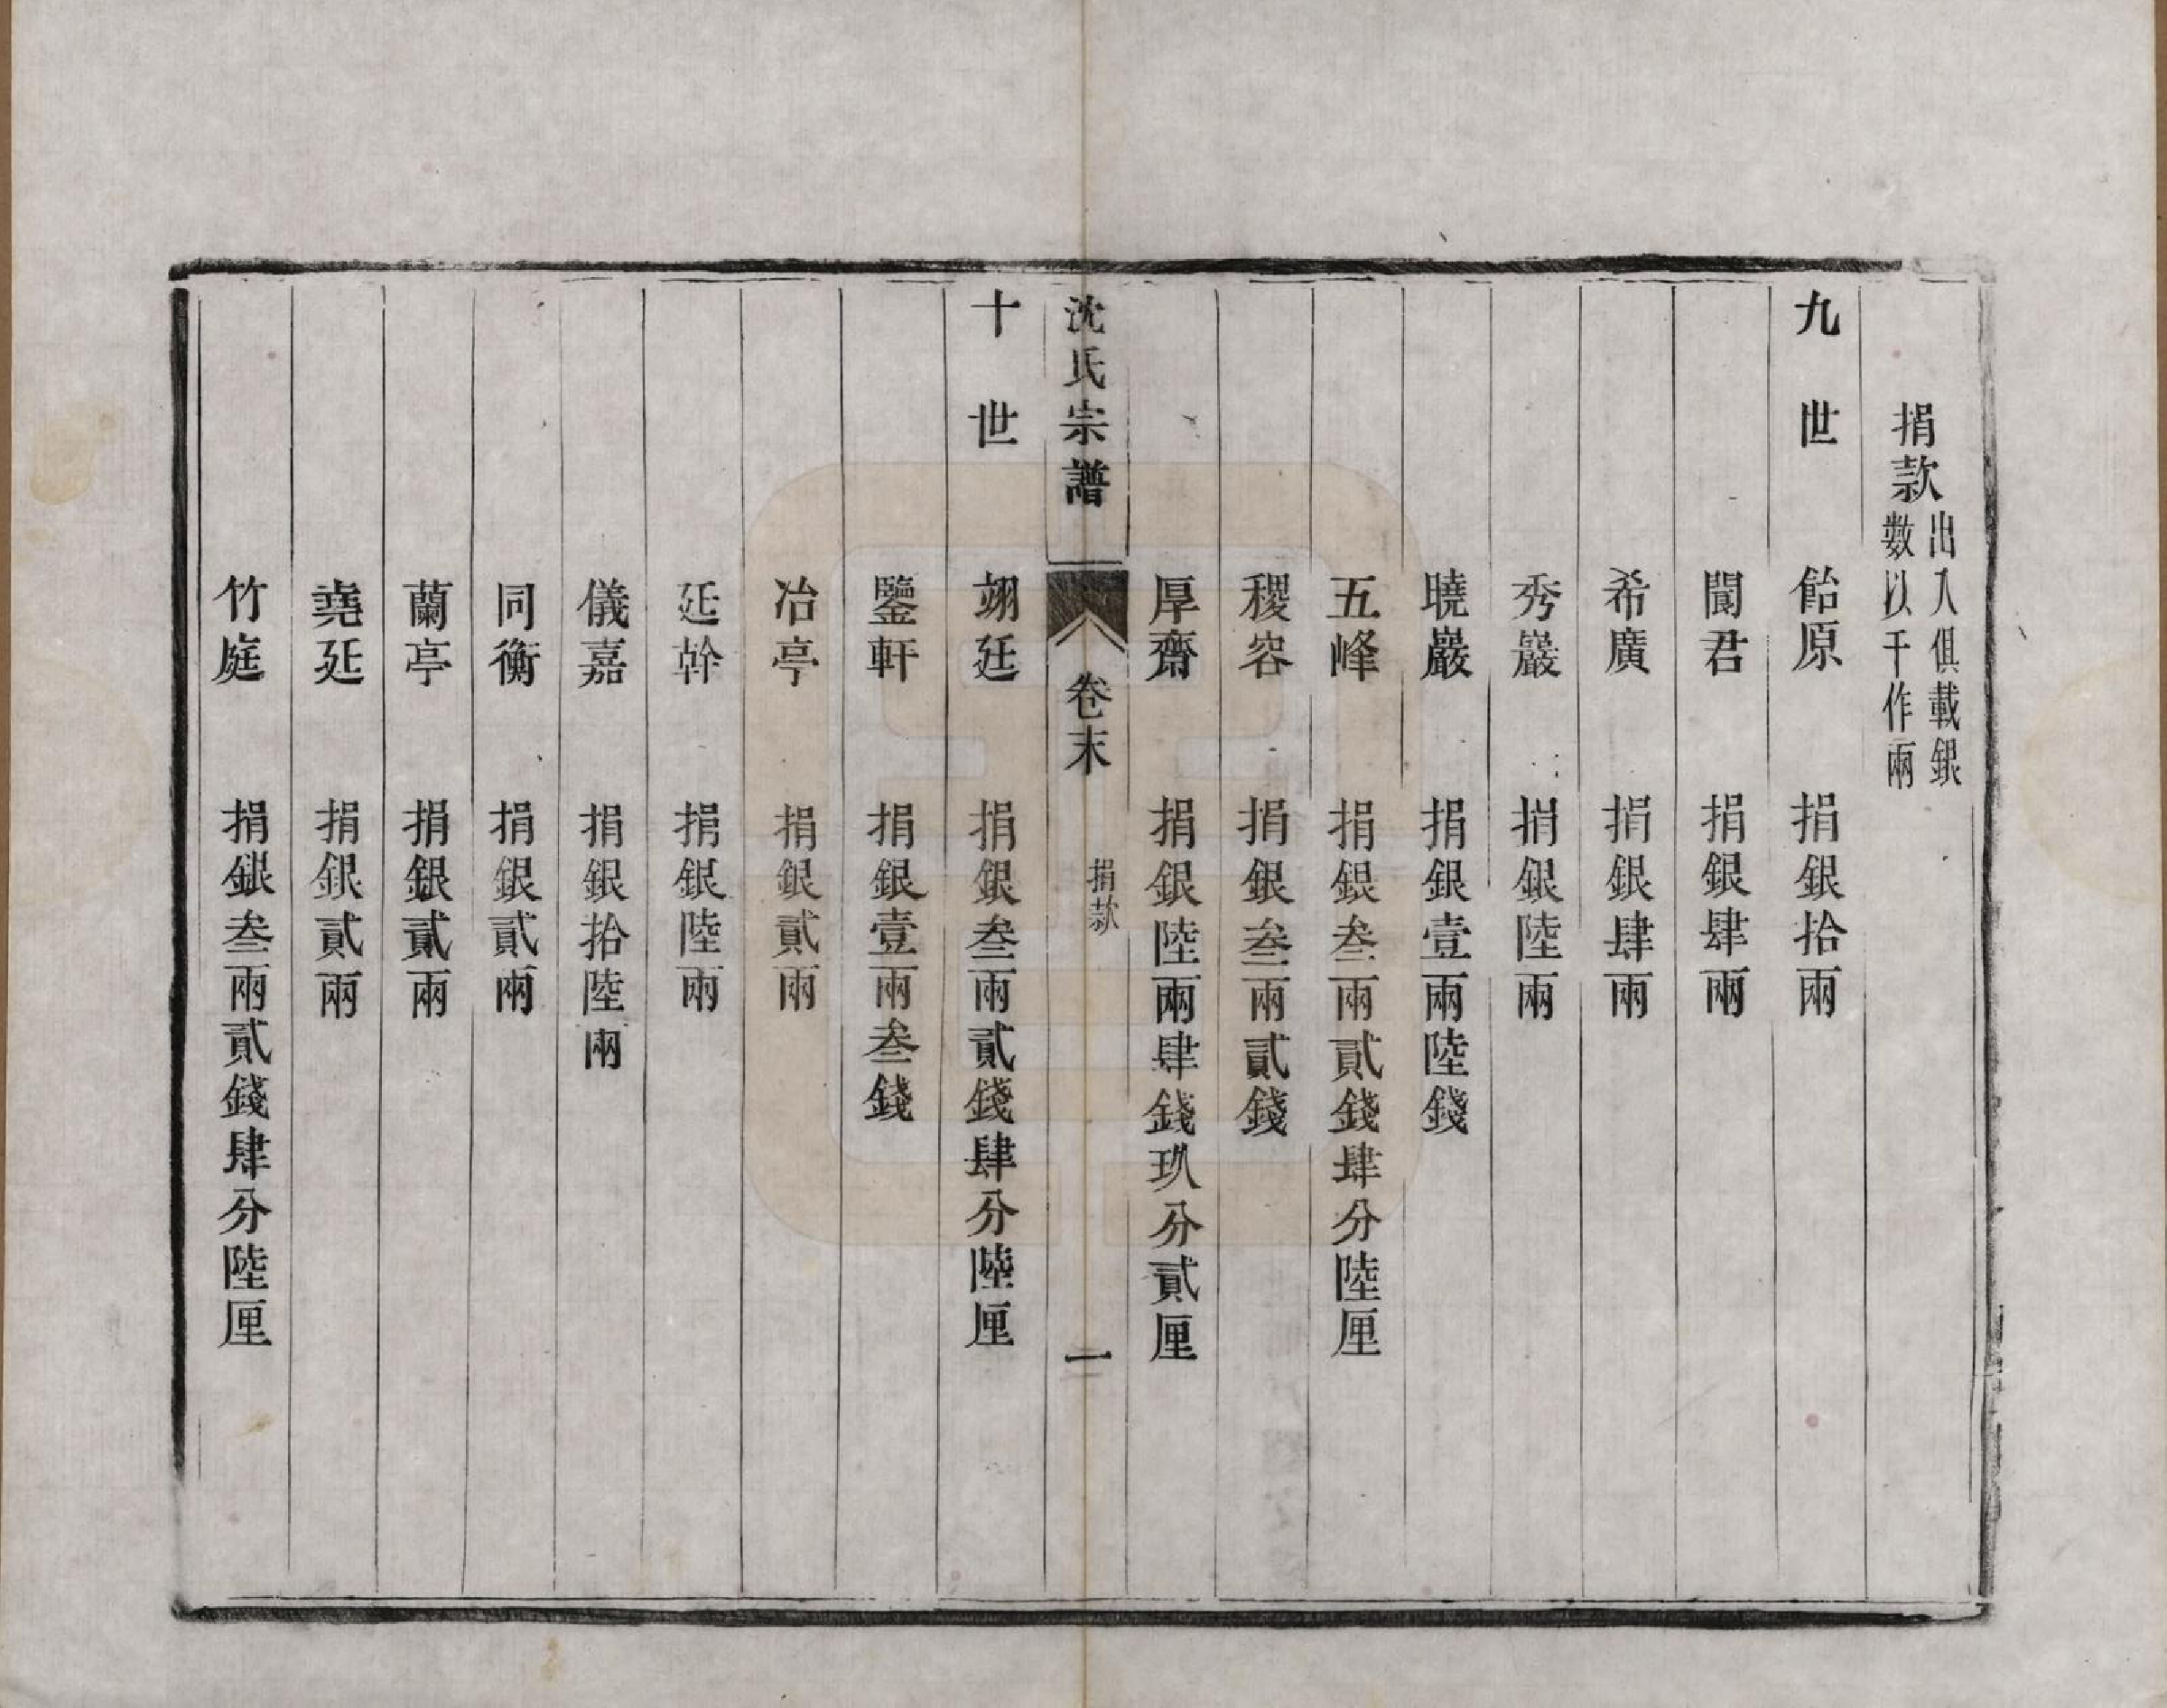 捐款出入俱載銀數以千作兩
九世 飴原 捐銀拾兩
闇君 捐銀肆兩
希廣 捐銀肆兩
秀巖 捐銀陸兩
曉巖 捐銀壹兩陸錢
五峰 捐銀叁兩貳錢肆分陸厘
稷容 捐銀叁兩貳錢
厚齋 捐銀陸兩肆錢玖分貳厘
沈氏宗譜 卷末 捐款 一
十世 翊廷 捐銀叁兩貳錢肆分陸厘
鑒軒 捐銀壹兩叁錢
冶亭 捐銀貳兩
廷幹 捐銀陸兩
儀嘉 捐銀拾陸兩
同衡 捐銀貳兩
蘭亭 捐銀貳兩
堯廷 捐銀貳兩
竹庭 捐銀叁兩貳錢肆分陸厘